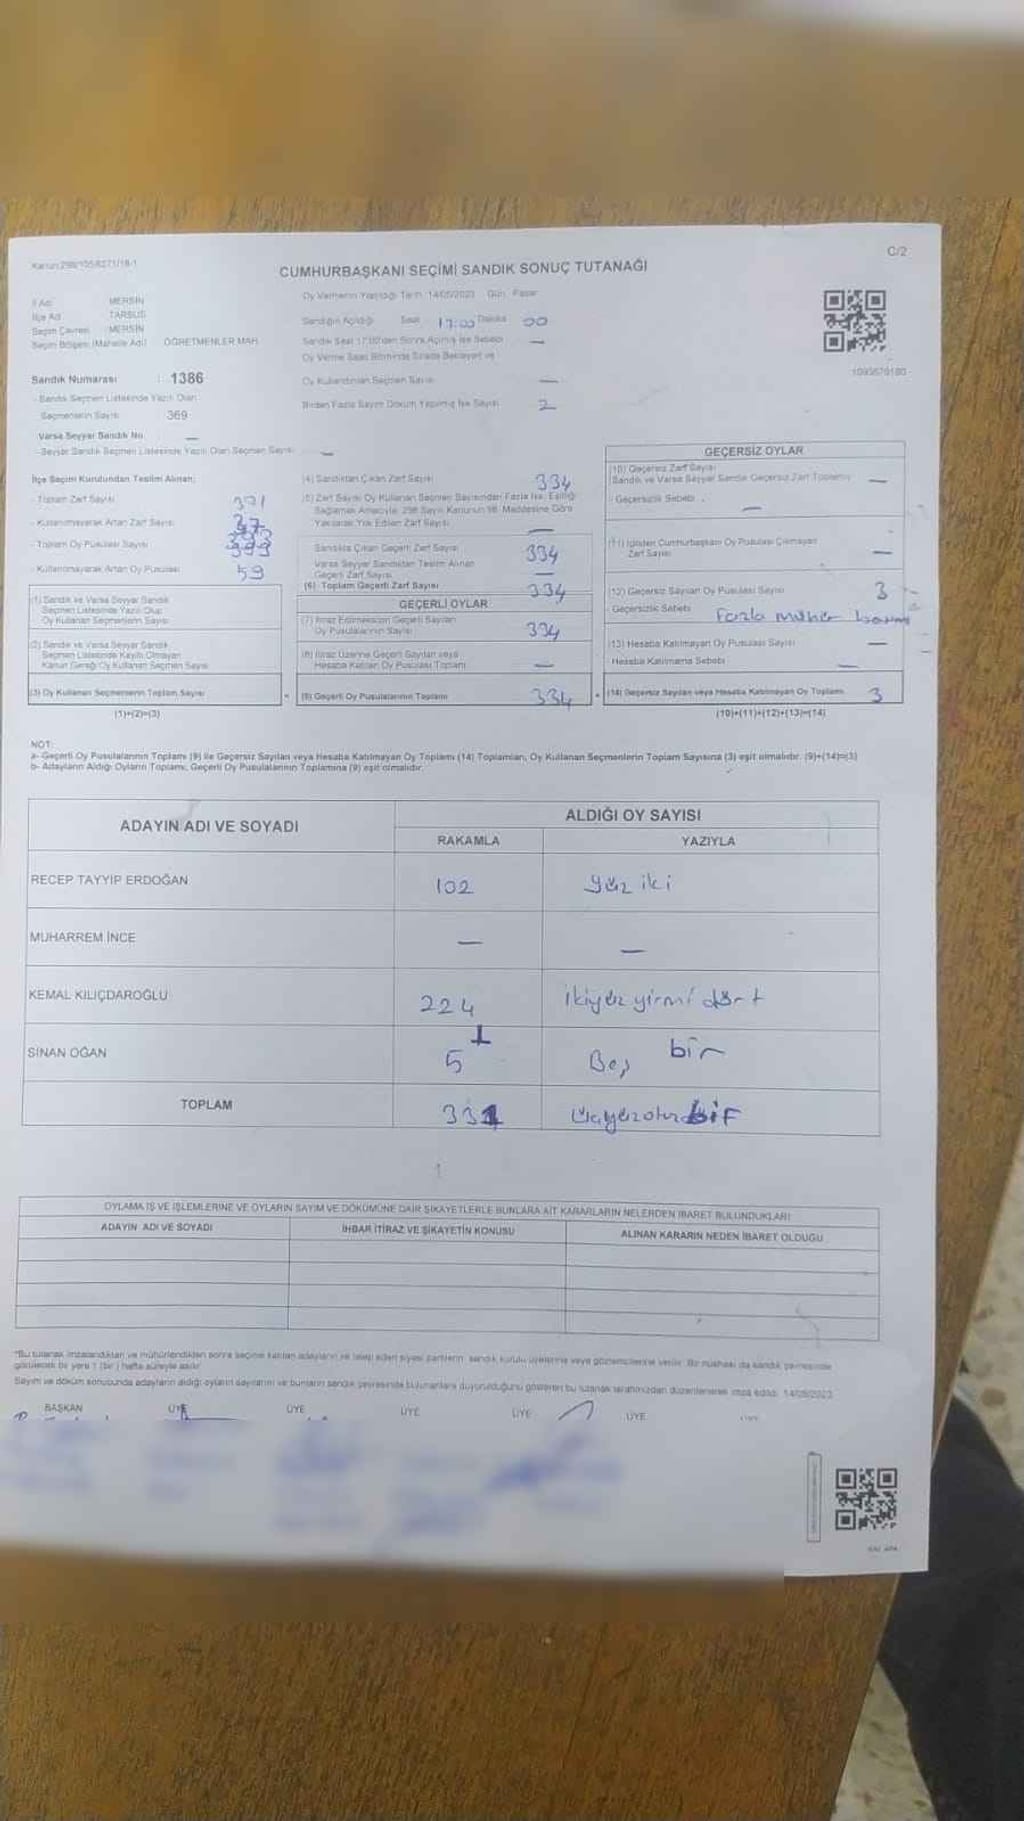 C/2
Kanun:298/105/6271/18-1
CUMHURBAŞKANI SEÇİMİ SANDIK SONUÇ TUTANAĞI
İl Adı MERSİN
İlçe Adı TARSUS
Seçim Çevresi MERSİN
Seçim Bölgesi (Mahalle Adı) ÖĞRETMENLER MAH.
Oy Vermenin Yapıldığı Tarih: 14/05/2023 Gün: Pazar
Sandığın Açıldığı Saat 17:00 Dakika 00
Sandık Saat 17:00'den Sonra Açılmış İse Sebebi —
Oy Verme Saati Bitiminde Sırada Bekleyen ve
Oy Kullandırılan Seçmen Sayısı —
Birden Fazla Sayım Döküm Yapılmış İse Sayısı 2
1095679180
Sandık Numarası : 1386
- Sandık Seçmen Listesinde Yazılı Olan
Seçmenlerin Sayısı 369
Varsa Seyyar Sandık No —
- Seyyar Sandık Seçmen Listesinde Yazılı Olan Seçmen Sayısı —
İlçe Seçim Kurulundan Teslim Alınan;
- Toplam Zarf Sayısı 371
- Kullanılmayarak Artan Zarf Sayısı 37
- Toplam Oy Pusulası Sayısı 393
- Kullanılmayarak Artan Oy Pusulası 59
(1) Sandık ve Varsa Seyyar Sandık
Seçmen Listesinde Yazılı Olup
Oy Kullanan Seçmenlerin Sayısı
(2) Sandık ve Varsa Seyyar Sandık
Seçmen Listesinde Kayıtlı Olmayan
Kanun Gereği Oy Kullanan Seçmen Sayısı
(3) Oy Kullanan Seçmenlerin Toplam Sayısı
(1)+(2)=(3)
(4) Sandıktan Çıkan Zarf Sayısı 334
(5) Zarf Sayısı Oy Kullanan Seçmen Sayısından Fazla İse, Eşitliği
Sağlamak Amacıyla, 298 Sayılı Kanunun 98. Maddesine Göre
Yakılarak Yok Edilen Zarf Sayısı —
Sandıkta Çıkan Geçerli Zarf Sayısı 334
Varsa Seyyar Sandıktan Teslim Alınan
Geçerli Zarf Sayısı —
(6) Toplam Geçerli Zarf Sayısı 334
GEÇERLİ OYLAR
(7) İtiraz Edilmeksizin Geçerli Sayılan
Oy Pusulalarının Sayısı 334
(8) İtiraz Üzerine Geçerli Sayılan veya
Hesaba Katılan Oy Pusulası Toplamı —
(9) Geçerli Oy Pusulalarının Toplamı 334
GEÇERSİZ OYLAR
(10) Geçersiz Zarf Sayısı
Sandık ve Varsa Seyyar Sandık Geçersiz Zarf Toplamı —
- Geçersizlik Sebebi —
(11) İçinden Cumhurbaşkanı Oy Pusulası Çıkmayan
Zarf Sayısı —
(12) Geçersiz Sayılan Oy Pusulası Sayısı 3
- Geçersizlik Sebebi Fazla mühür
(13) Hesaba Katılmayan Oy Pusulası Sayısı —
- Hesaba Katılmama Sebebi —
(14) Geçersiz Sayılan veya Hesaba Katılmayan Oy Toplamı 3
(10)+(11)+(12)+(13)=(14)
NOT:
a- Geçerli Oy Pusulalarının Toplamı (9) ile Geçersiz Sayılan veya Hesaba Katılmayan Oy Toplamı (14) Toplamları, Oy Kullanan Seçmenlerin Toplam Sayısına (3) eşit olmalıdır. (9)+(14)=(3)
b- Adayların Aldığı Oyların Toplamı, Geçerli Oy Pusulalarının Toplamına (9) eşit olmalıdır.
ADAYIN ADI VE SOYADI ALDIĞI OY SAYISI
RAKAMLA YAZIYLA
RECEP TAYYİP ERDOĞAN 102 yüz iki
MUHARREM İNCE — —
KEMAL KILIÇDAROĞLU 224 ikiyüz yirmi dört
1 bir
SİNAN OĞAN 5 Beş
TOPLAM 331 üçyüzotuzbir
OYLAMA İŞ VE İŞLEMLERİNE VE OYLARIN SAYIM VE DÖKÜMÜNE DAİR ŞİKAYETLERLE BUNLARA AİT KARARLARIN NELERDEN İBARET BULUNDUKLARI
ADAYIN ADI VE SOYADI İHBAR İTİRAZ VE ŞİKAYETİN KONUSU ALINAN KARARIN NEDEN İBARET OLDUĞU
*Bu tutanak imzalandıktan ve mühürlendikten sonra seçime katılan adayların ve talep eden siyasi partilerin sandık kurulu üyelerine veya gözlemcilerine verilir. Bir nüshası da sandık çevresinde
görülecek bir yere 1 (bir) hafta süreyle asılır.
Sayım ve döküm sonucunda adayların aldığı oyların sayılarını ve bunların sandık çevresinde bulunanlara duyurulduğunu gösteren bu tutanak tarafımızdan düzenlenerek imza edildi. 14/05/2023
BAŞKAN ÜYE ÜYE ÜYE ÜYE ÜYE